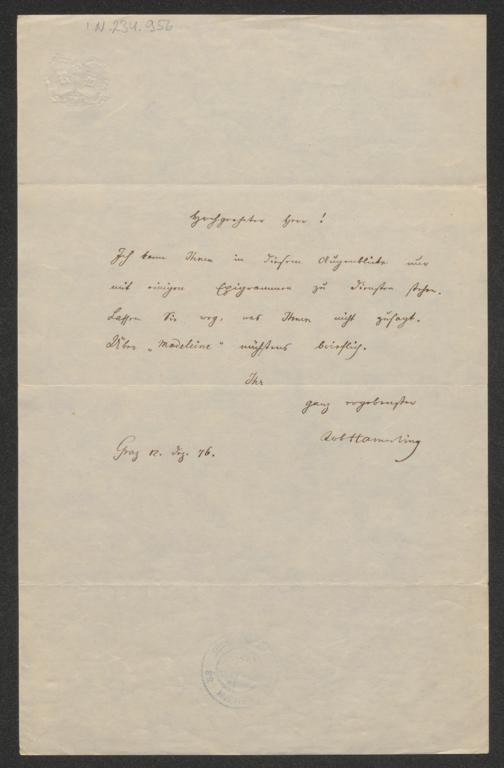 I.N. 234.956
Hochgeehrter Herr!
Ich kann Ihnen in diesem Augenblicke nur
mit einigen Epigrammen zu Diensten stehen.
Lassen Sie weg, was Ihnen nicht zusagt.
Über „Madeleine“ nächstens brieflich.
Ihr
ganz ergebenster
Rob Hamerling
Graz 12. Dez. 76.